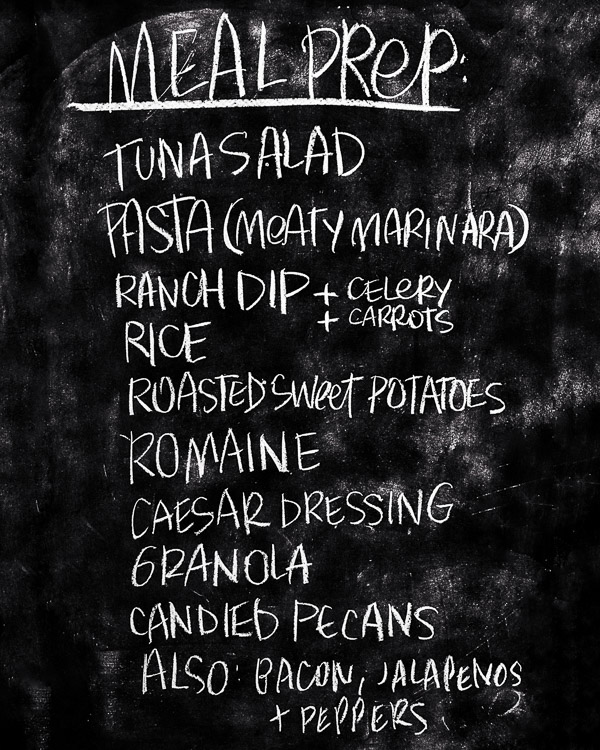 MEAL PREP:
TUNA SALAD
PASTA (MEATY MARINARA)
RANCH DIP + CELERY
+ CARROTS
RICE
ROASTED SWEET POTATOES
ROMAINE
CAESAR DRESSING
GRANOLA
CANDIED PECANS
ALSO: BACON, JALAPENOS
+ PEPPERS